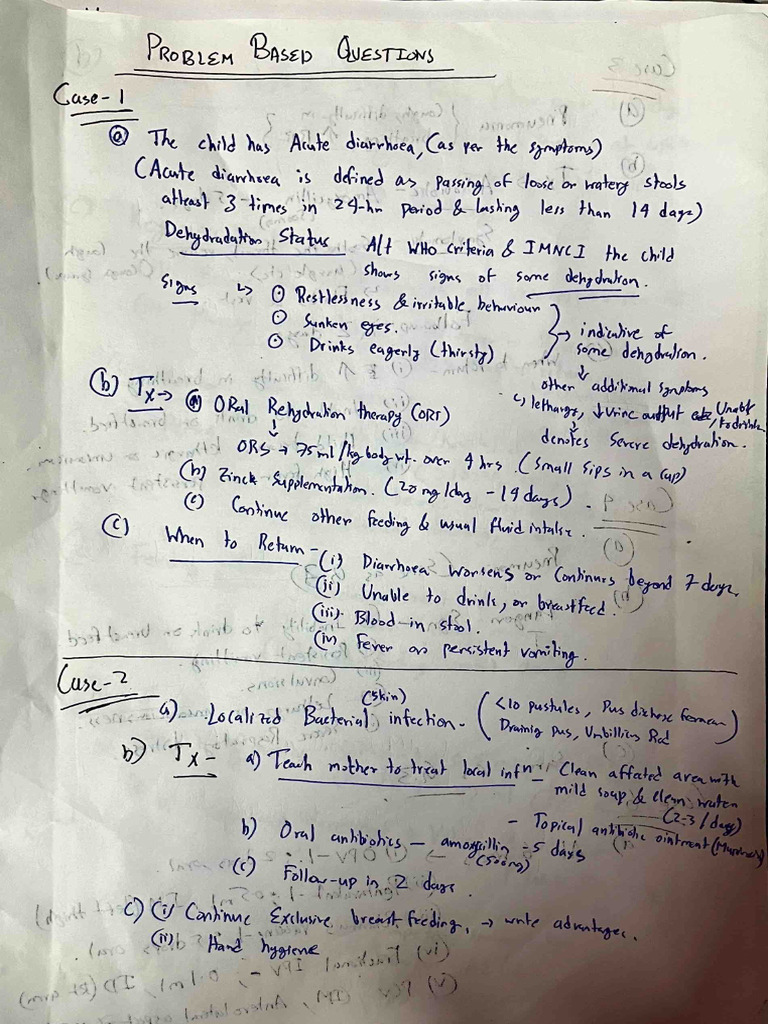 PROBLEM BASED QUESTIONS
Case-1
(a) The child has Acute diarrhoea, (as per the symptoms)
(Acute diarrhoea is defined as passing of loose or watery stools
atleast 3-times in 24-hr period & lasting less than 14 days)
Dehydradation Status A/t WHO criteria & IMNCI the child
shows signs of some dehydration.
Signs ↳ ⊙ Restlessness & irritable behaviour
⊙ Sunken eyes.
⊙ Drinks eagerly (thirsty)
→ indicative of
some dehydration.
↓
other additional symptoms
↳ lethargy, ↓ urine output Unable
to drink
↓
denotes Severe dehydration.
(b) Tx → (a) ORal Rehydration therapy (ORT)
↓
ORS → 75 ml/kg body wt. over 4 hrs. (small sips in a cup)
(b) Zinck Supplementation. (20 mg/day - 14 days)
(c) Continue other feeding & usual fluid intake.
(C) When to Return - (i) Diarrhoea worsens or Continues beyond 7 days.
(ii) Unable to drink, or breastfeed.
(iii). Blood-in stool.
(iv) Fever or persistent vomiting.
Case-2
a) Localized Bacterial (skin) infection - (<10 pustules, Pus
Draining pus, Umbillicus Red)
b) Tx - a) Teach mother to treat local infn - Clean affated area with
mild soap & clean water
(2-3/days)
- Topical antibiotic ointment
b) Oral antibiotics - amoxycillin - 5 days
(500mg)
(c) Follow-up in 2 days.
C) (i) Continue Exclusive breast feeding, → write advantages.
(ii) Hand hygiene